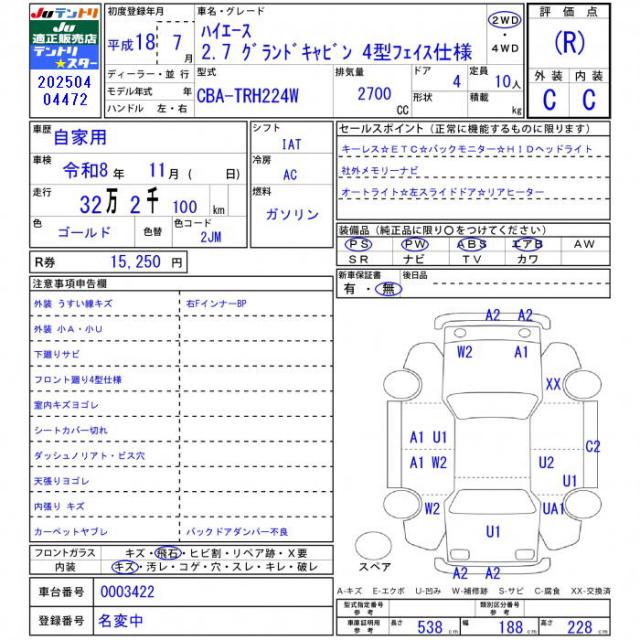 JUテントリ
JU
適正販売店
テントリ
★スター
202504
04472
初度登録年月
平成18年 7月
車名・グレード
ハイエース
2.7 グランドキャビン 4型フェイス仕様
2WD
・
4WD
評価点
(R)
外装 内装
C C
ディーラー・並行
モデル年式 年
ハンドル 左・右
型式
CBA-TRH224W
排気量
2700
CC
ドア 4
形状
定員 10人
積載 kg
車歴
自家用
車検
令和8年 11月( 日)
走行
32万 2千 100 km
色
ゴールド
色替
色コード
2JM
シフト
IAT
冷房
AC
燃料
ガソリン
R券 15,250 円
セールスポイント(正常に機能するものに限ります)
キーレス☆ETC☆バックモニター☆HIDヘッドライト
社外メモリーナビ
オートライト☆左スライドドア☆リアヒーター
装備品(純正品に限り〇をつけてください)
PS PW ABS エアB AW
SR ナビ TV カワ
新車保証書
有・無
後日品
注意事項申告欄
外装 うすい線キズ 右FインナーBP
外装 小A・小U
下廻りサビ
フロント廻り4型仕様
室内キズヨゴレ
シートカバー切れ
ダッシュノリアト・ビス穴
天張りヨゴレ
内張り キズ
カーペットヤブレ バックドアダンパー不良
フロントガラス キズ・飛石・ヒビ割・リペア跡・X要
内装 キズ・汚レ・コゲ・穴・スレ・キレ・破レ
車台番号 0003422
登録番号 名変中
A2 A2
W2 A1
XX
A1 U1
C2
A1 W2
U2
U1
W2
UA1
U1
A2 A2
スペア
A-キズ E-エクボ U-凹み W-補修跡 S-サビ C-腐食 XX-交換済
型式指定番号
参考
類別区分番号
参考
車庫証明用
参考
長さ 538 cm 幅 188 cm 高さ 228 cm